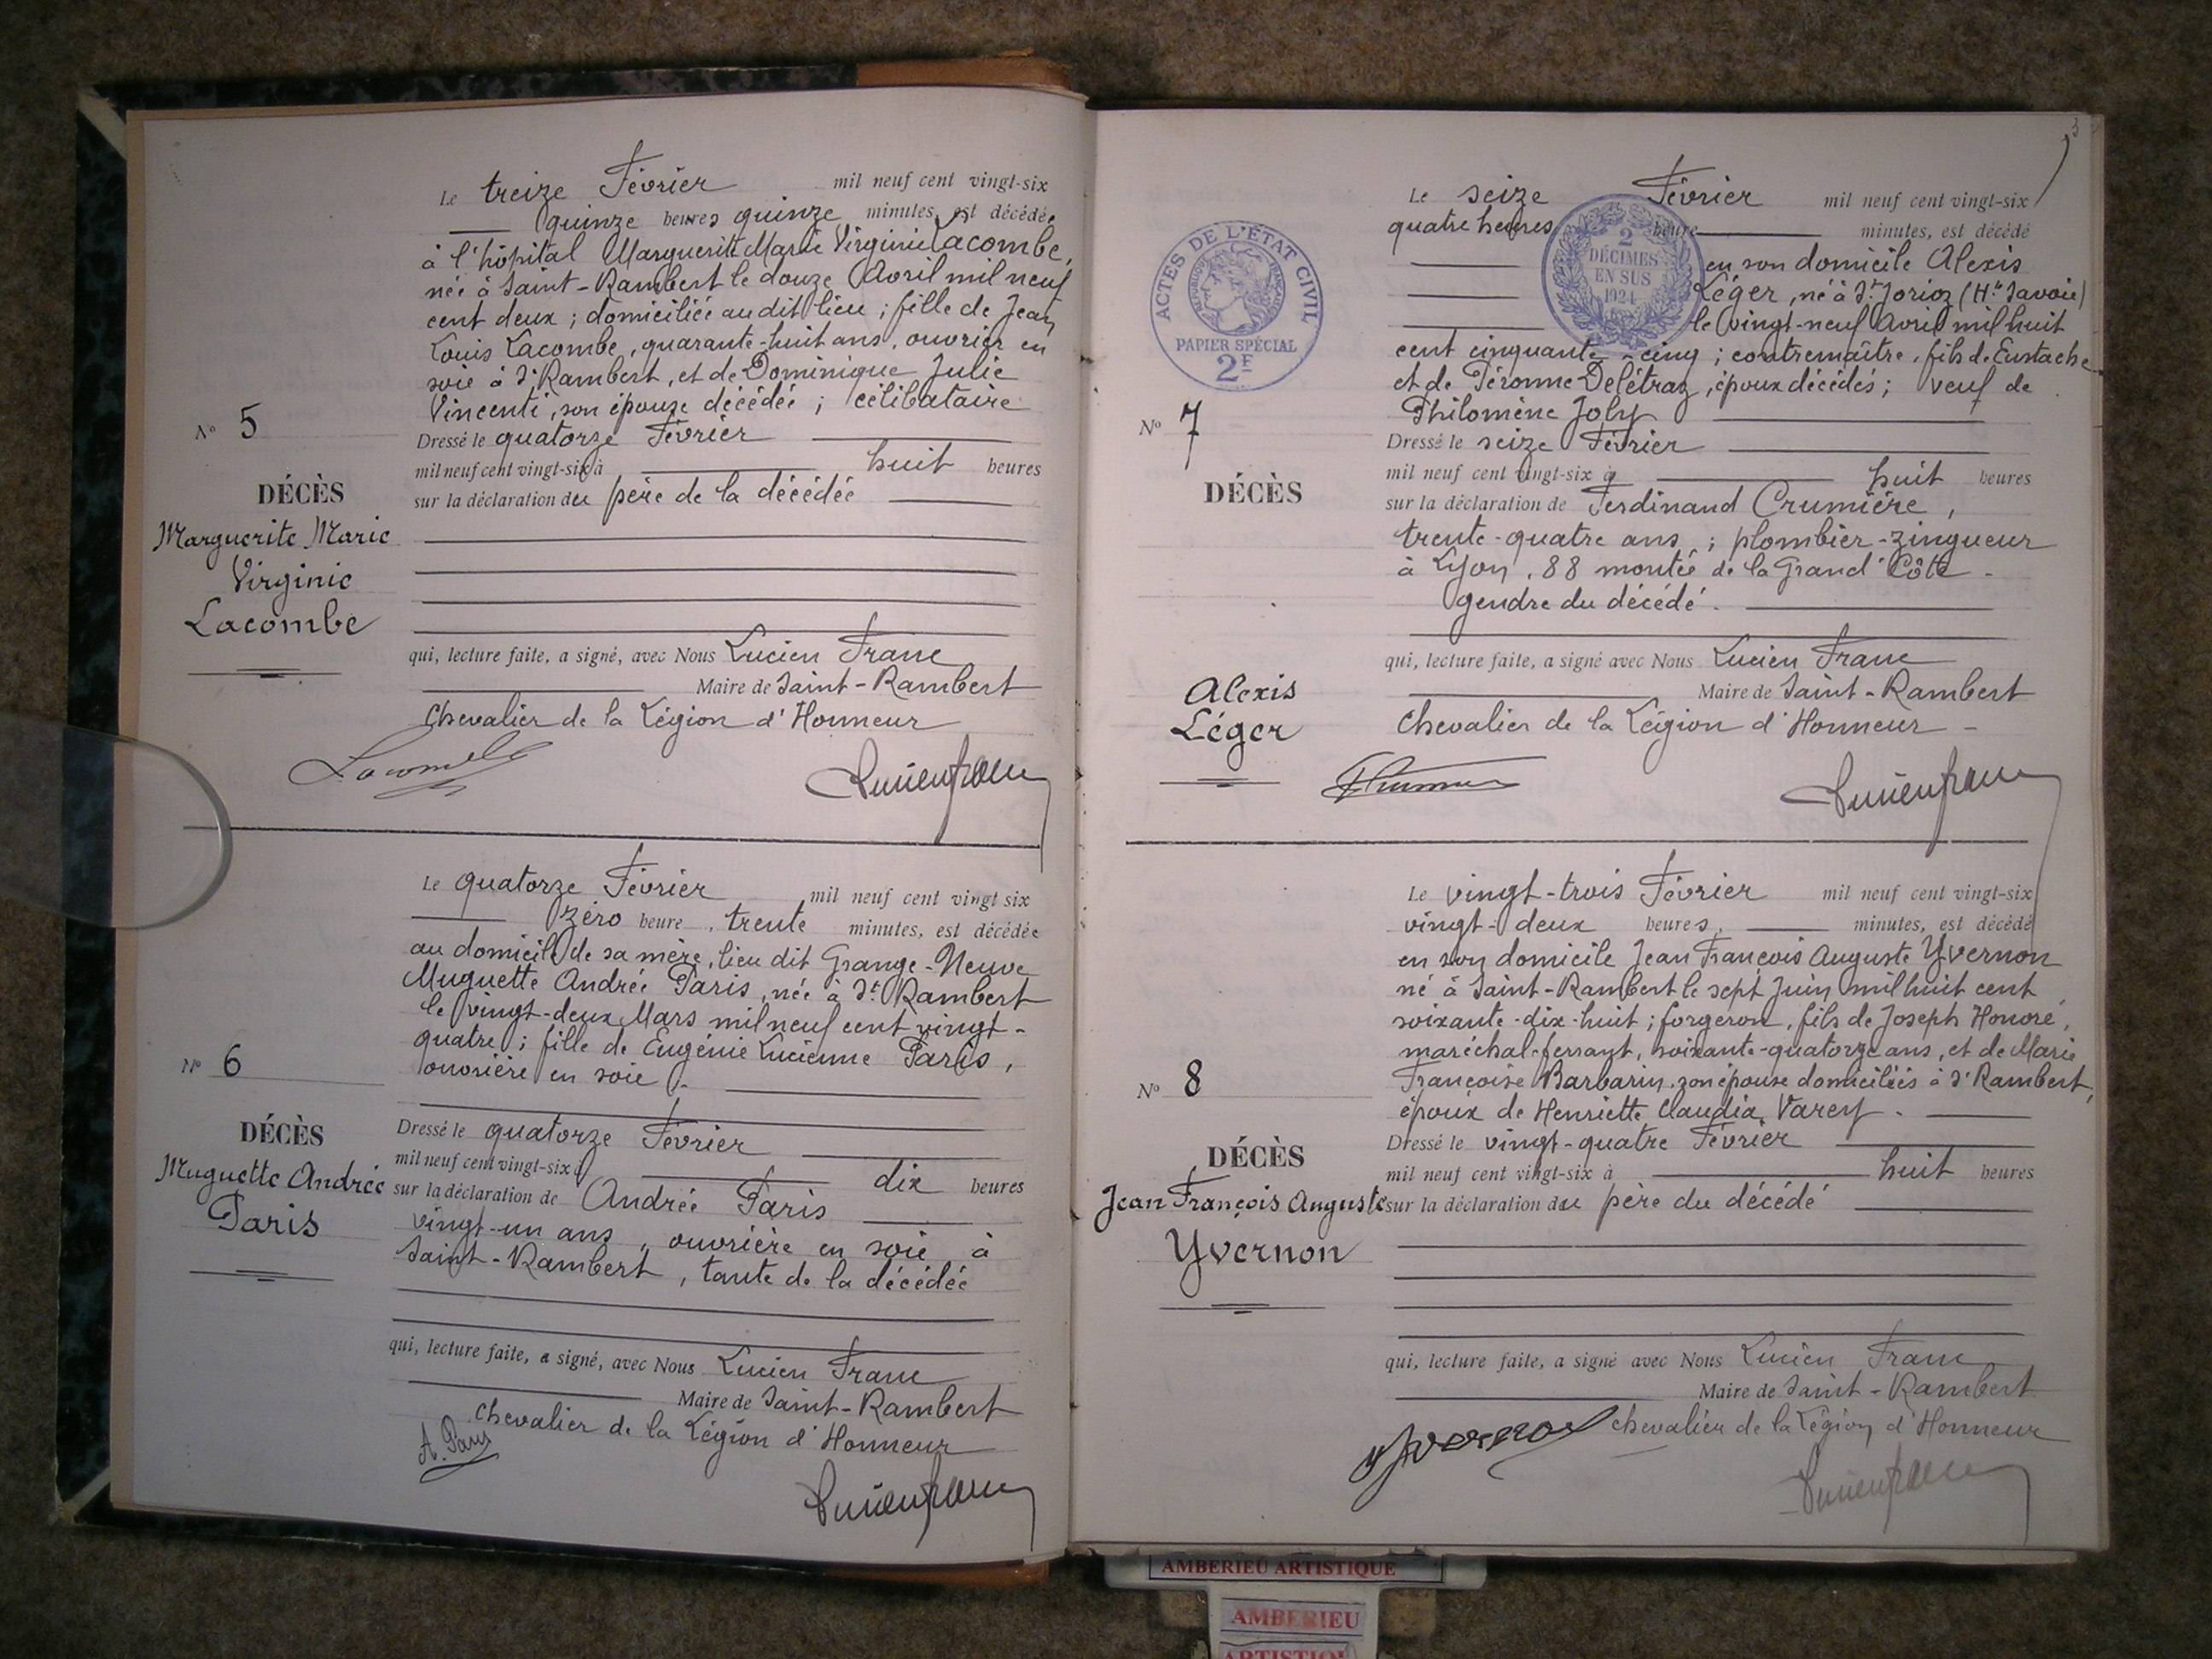 Le treize Février mil neuf cent vingt-six
quinze heures quinze minutes, est décédée
à l'hôpital Marguerite Marie Virginie Lacombe,
née à Saint-Rambert le douze Avril mil neuf
cent deux ; domiciliée audit lieu ; fille de Jean
Louis Lacombe, quarante-huit ans, ouvrier en
soie à St Rambert, et de Dominique Julie
Vincenti, son épouse décédée ; célibataire
Dressé le quatorze Février
mil neuf cent vingt-six à huit heures
sur la déclaration du père de la décédée
No 5
DÉCÈS
Marguerite Marie
Virginie
Lacombe
qui, lecture faite, a signé, avec Nous Lucien Franc
Maire de Saint-Rambert
Chevalier de la Légion d'Honneur
Lacombe Lucien franc
Le quatorze Février mil neuf cent vingt six
zéro heure, trente minutes, est décédée
au domicile de sa mère, lieu dit Grange-Neuve
Muguette Andrée Paris, née à St Rambert
le vingt-deux Mars mil neuf cent vingt-
quatre ; fille de Eugénie Lucienne Paris,
ouvrière en soie.-
No 6
DÉCÈS
Muguette Andrée
Paris
Dressé le quatorze Février
mil neuf cent vingt-six à dix heures
sur la déclaration de Andrée Paris
vingt-un ans, ouvrière en soie à
Saint-Rambert, tante de la décédée
qui, lecture faite, a signé, avec Nous Lucien Franc
Maire de Saint-Rambert
chevalier de la Légion d'Honneur
A. Paris
Lucien franc
3
ACTES DE L'ÉTAT CIVIL
RÉPUBLIQUE FRANÇAISE
PAPIER SPÉCIAL
2F
2
DÉCIMES
EN SUS
1924
Le seize Février mil neuf cent vingt-six
quatre heures heure minutes, est décédé
en son domicile Alexis
Léger, né à St Jorioz (Hte Savoie)
le vingt-neuf Avril mil huit
cent cinquante-cinq ; contremaître, fils de Eustache
et de Péronne Delétraz, époux décédés ; veuf de
Philomène Joly
No 7
DÉCÈS
Alexis
Léger
Dressé le seize Février
mil neuf cent vingt-six à huit heures
sur la déclaration de Ferdinand Crumière,
trente-quatre ans ; plombier-zingueur
à Lyon, 88 montée de la Grand'Côte -
gendre du décédé.
qui, lecture faite, a signé avec Nous Lucien Franc
Maire de Saint-Rambert
Chevalier de la Légion d'Honneur -
Lucien franc
Le vingt-trois Février mil neuf cent vingt-six
vingt-deux heures, minutes, est décédé
en son domicile Jean François Auguste Yvernon
né à Saint-Rambert le sept Juin mil huit cent
soixante-dix-huit ; forgeron, fils de Joseph Honoré,
maréchal-ferrant, soixante-quatorze ans, et de Marie
Françoise Barbarin, son épouse domiciliés à St Rambert,
époux de Henriette Claudia Varey.
No 8
DÉCÈS
Jean François Auguste
Yvernon
Dressé le vingt-quatre Février
mil neuf cent vingt-six à huit heures
sur la déclaration du père du décédé
qui, lecture faite, a signé avec Nous Lucien Franc
Maire de Saint-Rambert
chevalier de la Légion d'Honneur
Yvernon
Lucien franc
AMBERIEU ARTISTIQUE
AMBERIEU
ARTISTIQU